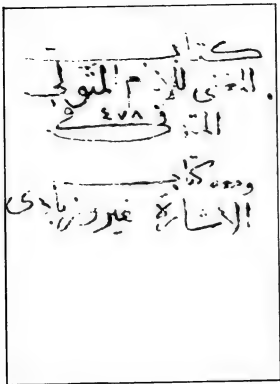 كتاب
المغنى للإمام المتولي
المتوفى في ٤٧٨
ومعه كتاب
الاشارة فيروزبادى